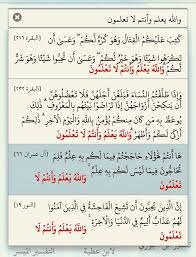 والله يعلم وأنتم لا تعلمون
كُتِبَ عَلَيْكُمُ الْقِتَالُ وَهُوَ كُرْهٌ لَّكُمْ ۖ وَعَسَىٰ أَن
[البقرة ٢١٦]
تَكْرَهُوا شَيْئًا وَهُوَ خَيْرٌ لَّكُمْ ۖ وَعَسَىٰ أَن تُحِبُّوا شَيْئًا وَهُوَ شَرٌّ
لَّكُمْ ۗ وَاللَّهُ يَعْلَمُ وَأَنتُمْ لَا تَعْلَمُونَ
وَإِذَا طَلَّقْتُمُ النِّسَاءَ فَبَلَغْنَ أَجَلَهُنَّ فَلَا
[البقرة ٢٣٢]
تَعْضُلُوهُنَّ أَن يَنكِحْنَ أَزْوَاجَهُنَّ إِذَا تَرَاضَوْا بَيْنَهُم بِالْمَعْرُوفِ ۗ ذَٰلِكَ
يُوعَظُ بِهِ مَن كَانَ مِنكُمْ يُؤْمِنُ بِاللَّهِ وَالْيَوْمِ الْآخِرِ ۗ ذَٰلِكُمْ
أَزْكَىٰ لَكُمْ وَأَطْهَرُ ۗ وَاللَّهُ يَعْلَمُ وَأَنتُمْ لَا تَعْلَمُونَ
هَا أَنتُمْ هَٰؤُلَاءِ حَاجَجْتُمْ فِيمَا لَكُم بِهِ عِلْمٌ فَلِمَ
[آل عمران ٦٦]
تُحَاجُّونَ فِيمَا لَيْسَ لَكُم بِهِ عِلْمٌ ۚ وَاللَّهُ يَعْلَمُ وَأَنتُمْ لَا
تَعْلَمُونَ
إِنَّ الَّذِينَ يُحِبُّونَ أَن تَشِيعَ الْفَاحِشَةُ فِي الَّذِينَ آمَنُوا
[النور ١٩]
لَهُمْ عَذَابٌ أَلِيمٌ فِي الدُّنْيَا وَالْآخِرَةِ ۚ وَاللَّهُ يَعْلَمُ وَأَنتُمْ لَا تَعْلَمُونَ
التفسير الميسر